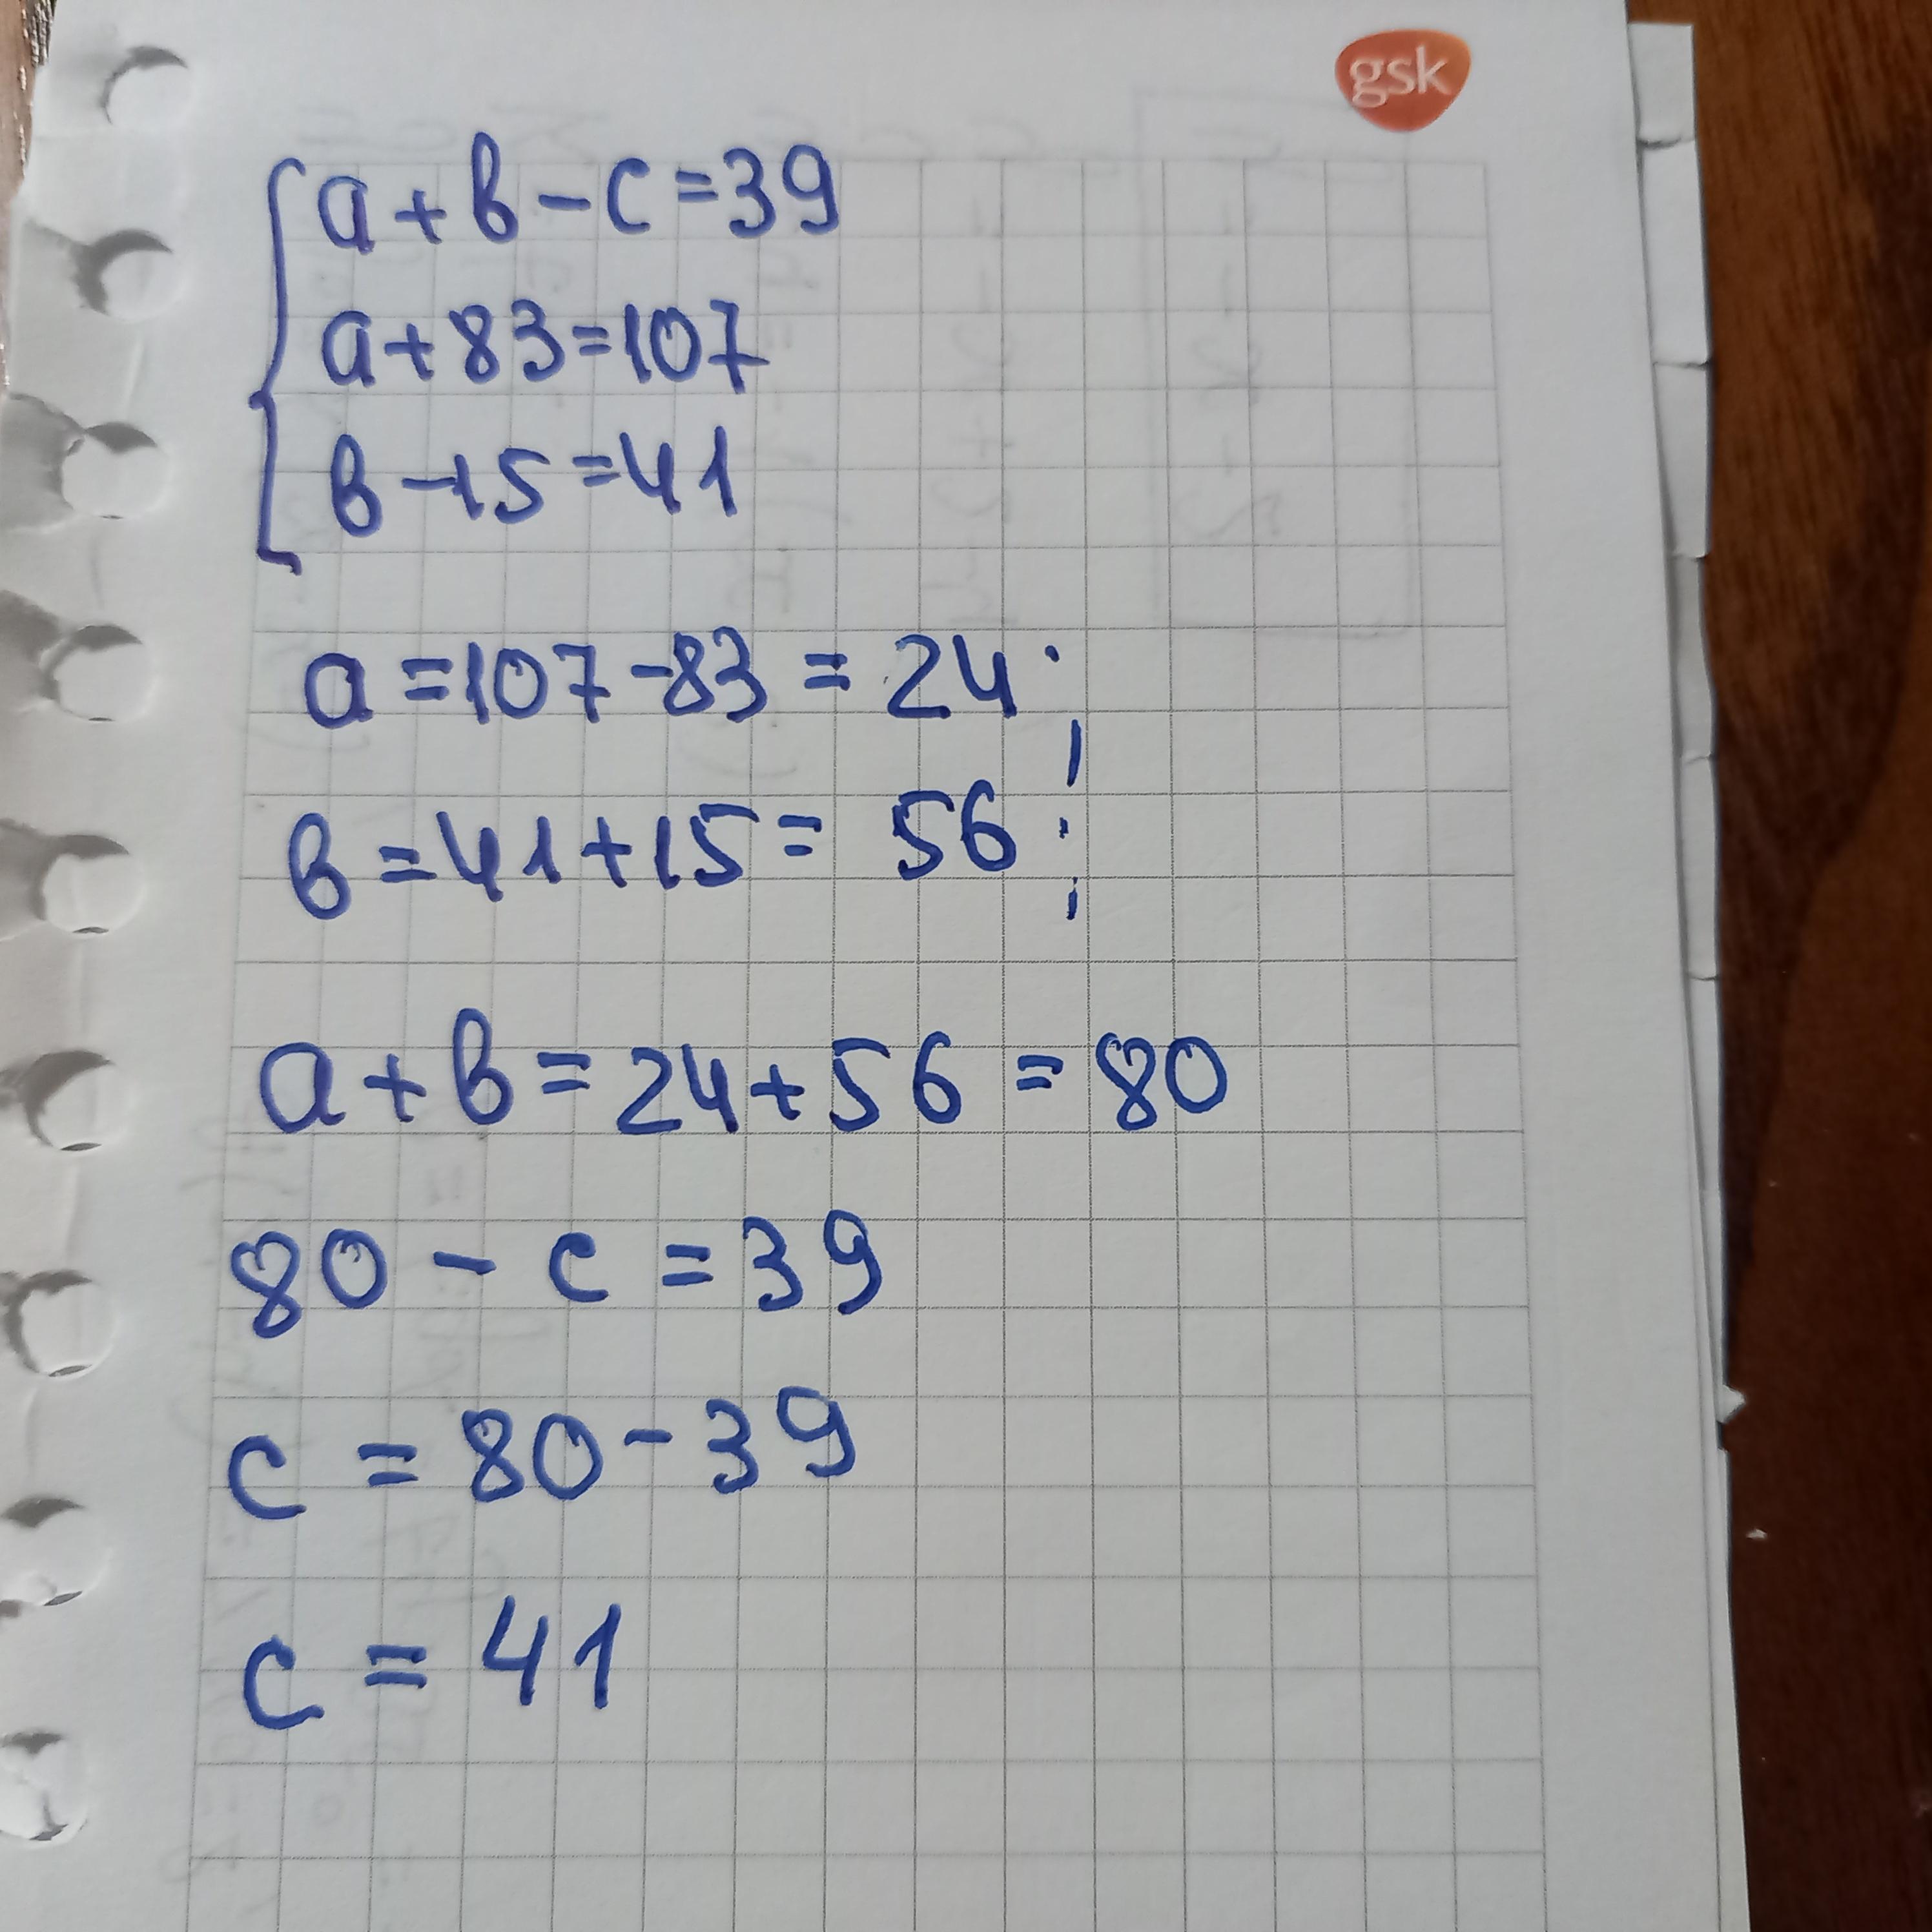 gsk
a + b - c = 39
a + 83 = 107
b - 15 = 41
a = 107 - 83 = 24 ;
b = 41 + 15 = 56 ;
a + b = 24 + 56 = 80
80 - c = 39
c = 80 - 39
c = 41